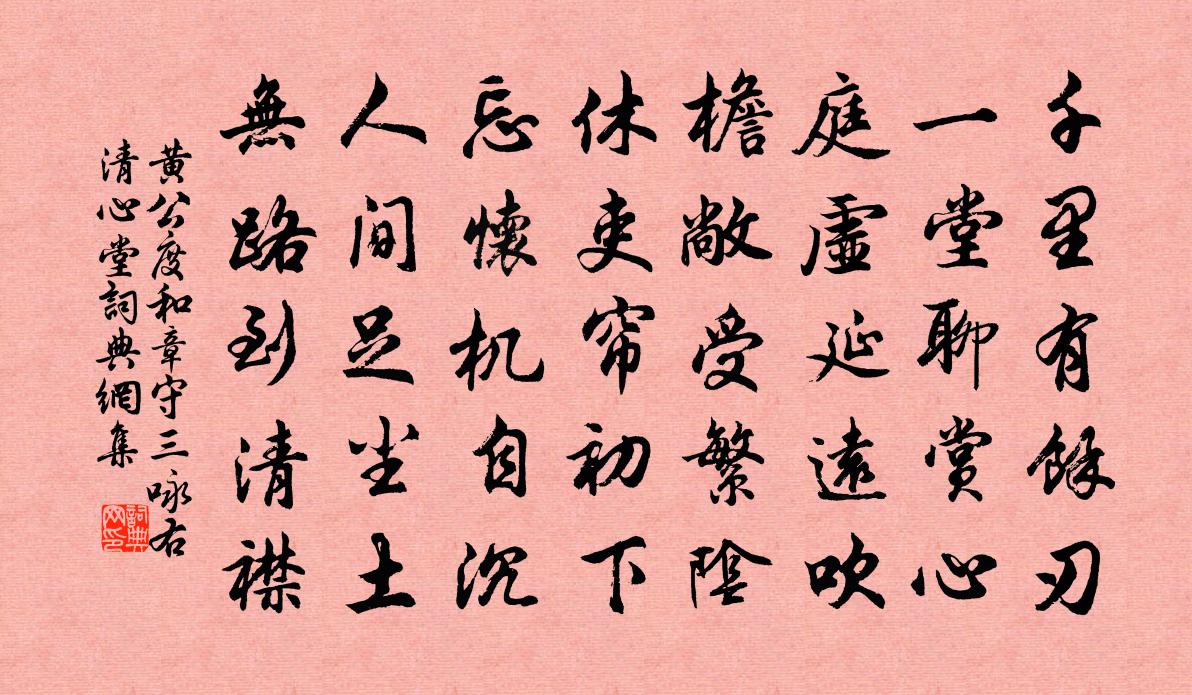 千里有餘刃
一堂聊賞心
庭虛延遠吹
檐敞受繁陰
休吏帘初下
忘懷机自沉
人間足尘土
無路到清襟
黄公度和章守三咏右
清心堂詞典網集
詞典網印